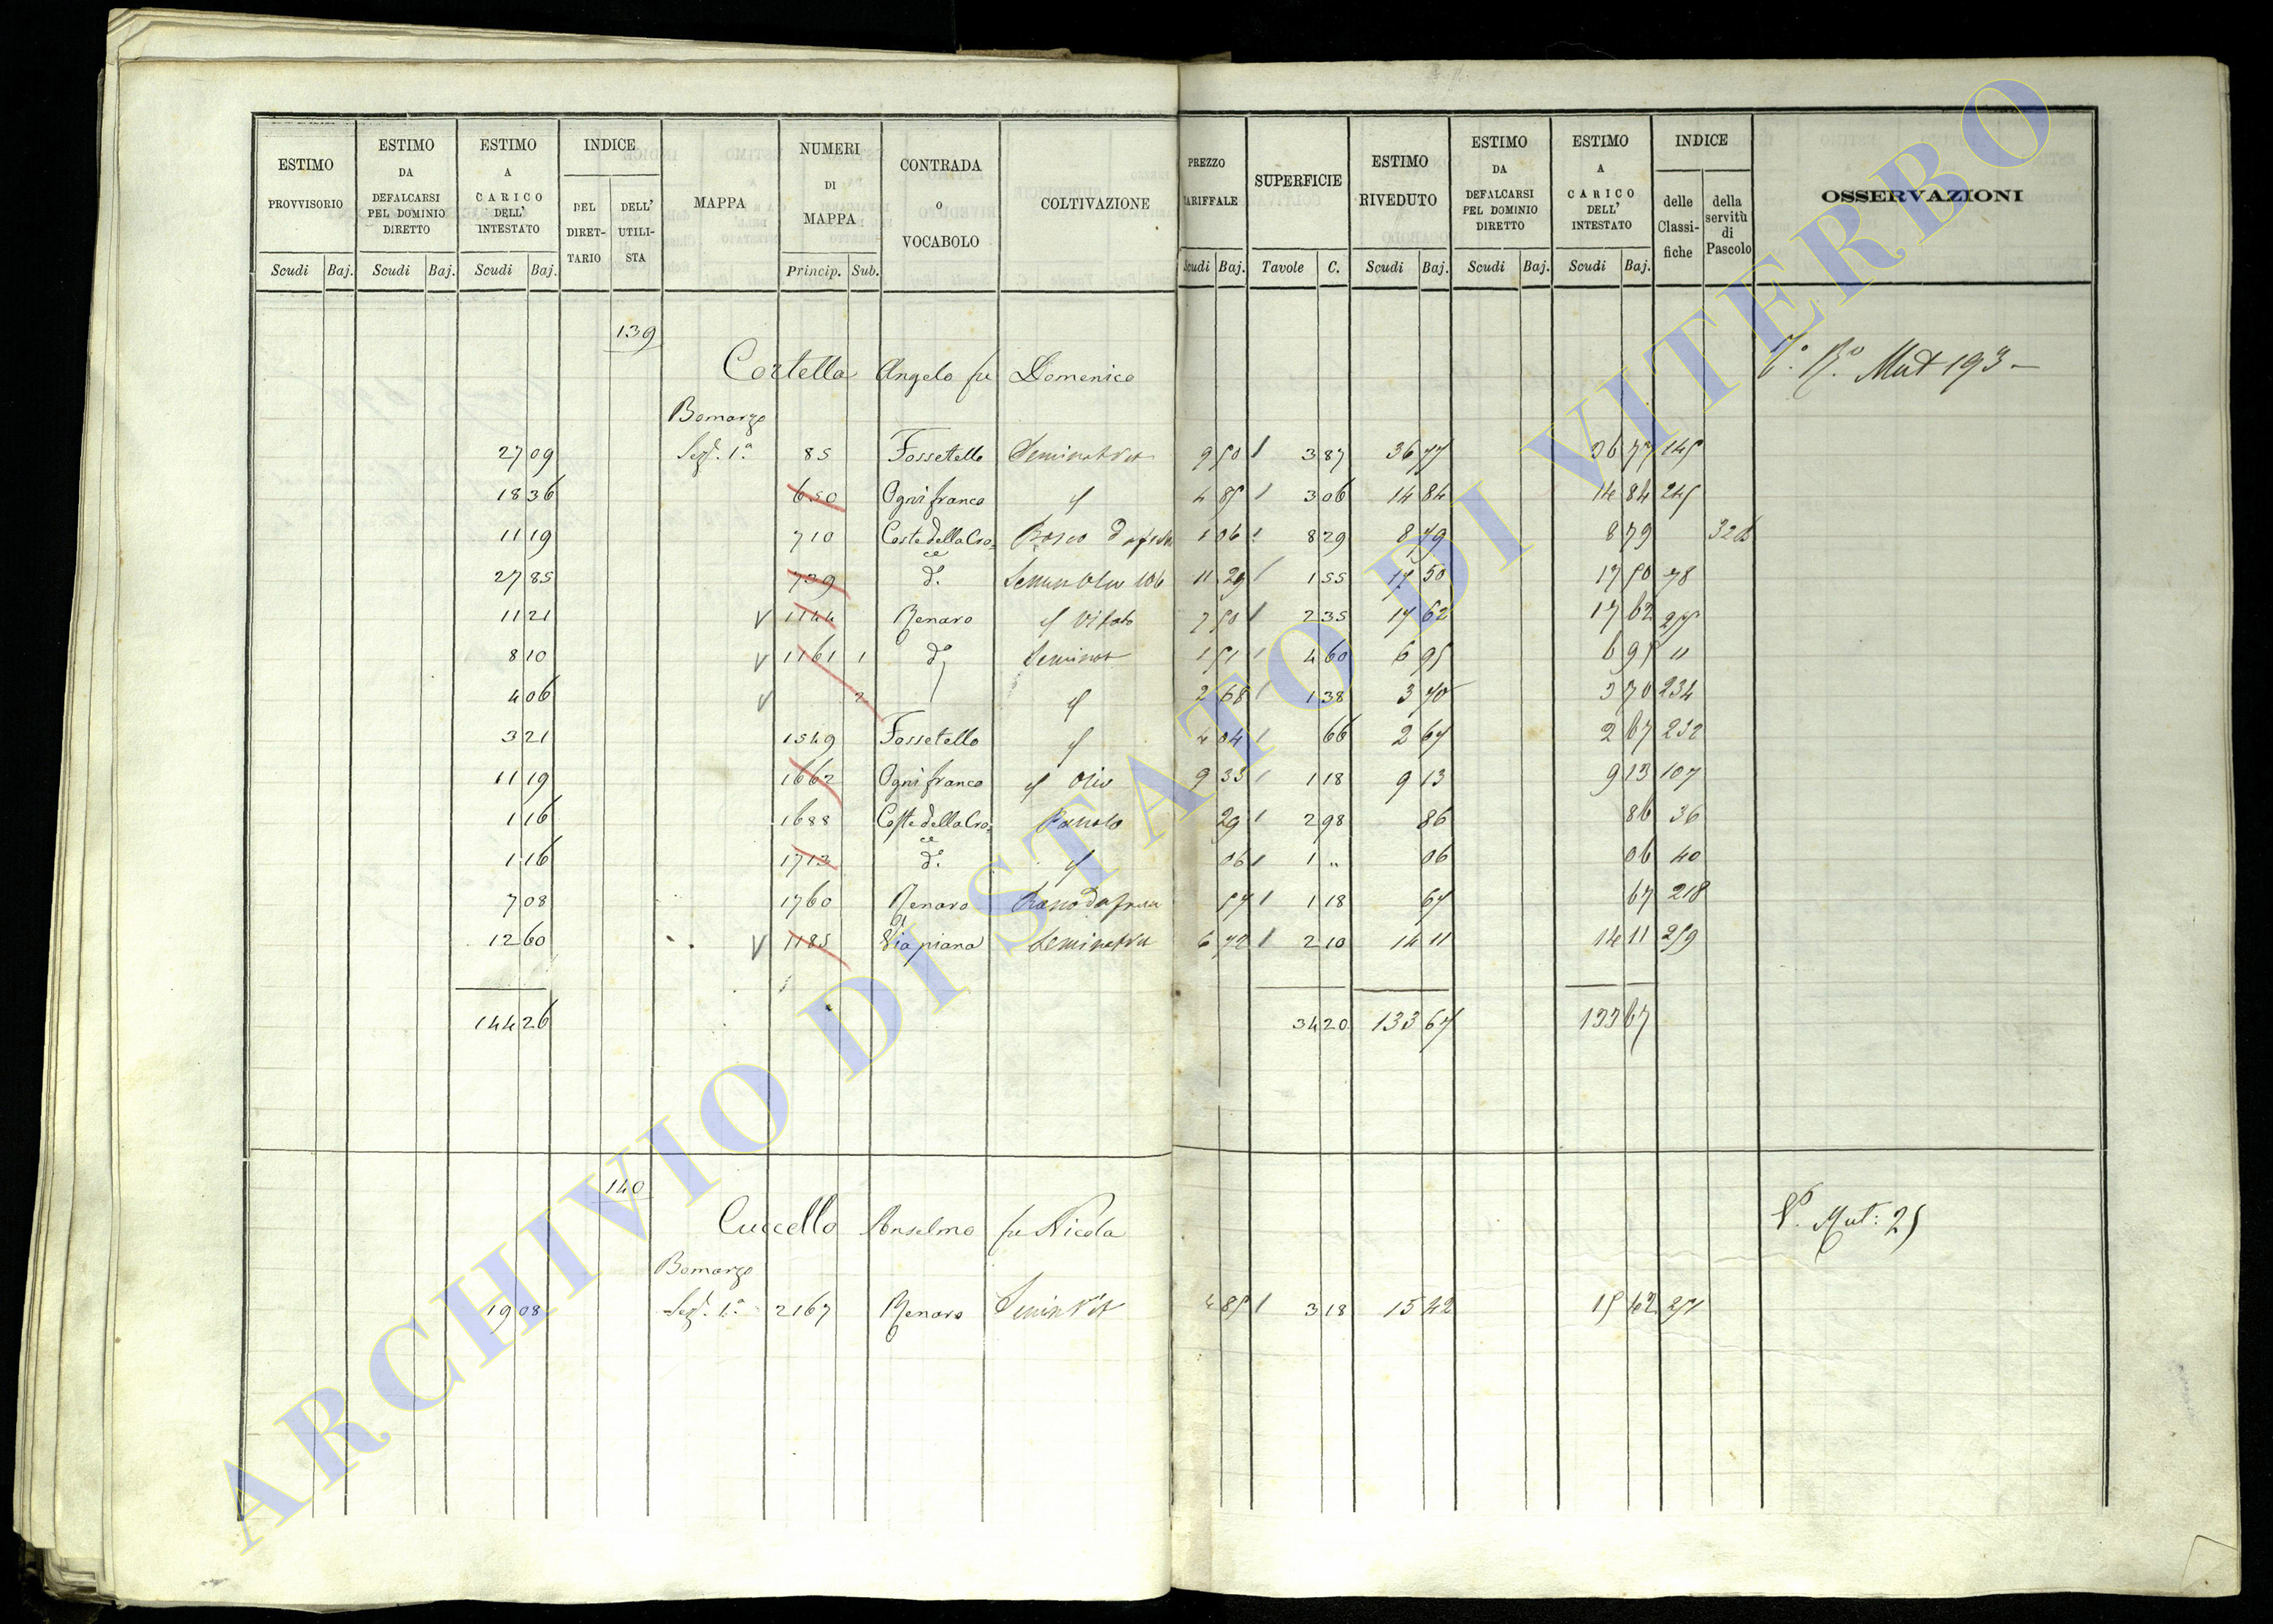 ESTIMO PROVVISORIO Scudi Baj.
ESTIMO DA DEFALCARSI PEL DOMINIO DIRETTO Scudi Baj.
ESTIMO A CARICO DELL' INTESTATO Scudi Baj.
INDICE DEL DIRET-TARIO DELL' UTILI-STA
MAPPA
NUMERI DI MAPPA Princip. Sub.
CONTRADA O VOCABOLO
COLTIVAZIONE
PREZZO TARIFFALE Scudi Baj.
SUPERFICIE Tavole C.
ESTIMO RIVEDUTO Scudi Baj.
ESTIMO DA DEFALCARSI PEL DOMINIO DIRETTO Scudi Baj.
ESTIMO A CARICO DELL' INTESTATO Scudi Baj.
INDICE delle Classi-fiche della servitù di Pascolo
OSSERVAZIONI
139
Cortella Angelo fu Domenico Mut 193
Bomarzo
27 09 Sez. 1ª 85 Fossetello Seminat Vit 9 50 3 87 36 77 36 77 145
18 36 650 Ogni franco 4 85 3 06 14 84 14 84 245
11 19 710 Coste della Cro=ce Bosco 1 06 8 29 8 79 8 79 326
27 85 739 d.º 11 29 1 55 17 50 17 50 78
11 21 V 1144 Renaro Vitato 7 50 2 35 17 62 17 62 275
8 10 V 1161 1 d.º Seminat 1 51 4 60 6 95 6 95 11
4 06 V 2 2 68 1 38 3 70 3 70 234
3 21 1549 Fossetello 4 04 66 2 67 2 67 232
11 19 1662 Ogni franco Oliv 9 33 1 18 9 13 9 13 107
1 16 1688 Coste della Cro=ce 29 2 98 86 86 36
1 16 1713 d.º 06 1 " 06 06 40
7 08 1760 Renaro 57 1 18 67 67 218
12 60 V 1185 Via piana Seminat Vit 6 72 2 10 14 11 14 11 259
144 26 34 20 133 67 133 67
140
Cuccello Anselmo fu Nicola Mut: 25
Bomarzo
19 08 Sez. 1ª 2167 Renaro Semin Vit 4 85 3 18 15 42 15 42 251
ARCHIVIO DI STATO DI VITERBO